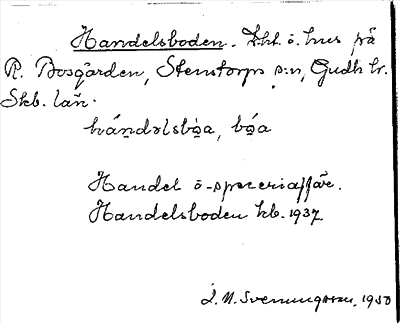 Handelsboden. Lht. o. hus på
R. Bosgården, Stenstorps s:n, Gudh. hr.
Skb. län.
hándəlsbọa, bọa
Handel o -speceriaffär.
Handelsboden kb. 1937.
J. N. Svenungsson, 1950